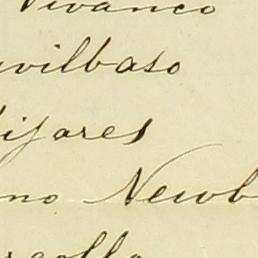 Vivanco
vilbaso
ijares
no Newb